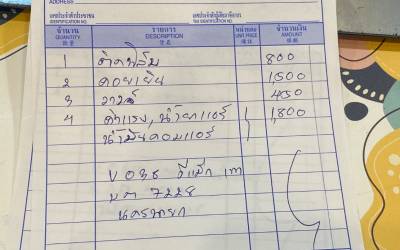 ADDRESS
เลขประจำตัวประชาชน
IDENTIFICATION NO.
เลขประจำตัวผู้เสียภาษีอากร
TAX IDENTIFICATION NO.
จำนวน รายการ หน่วยละ จำนวนเงิน
QUANTITY DESCRIPTION UNIT PRICE AMOUNT
1 ติดฟิล์ม 800
2 คอยเย็น 1500
3 วาล์ว 450
4 ค่าแรง, น้ำยาแอร์ 1,800
น้ำมันคอมแอร์
ดีแม็ก
7228
นครนายก